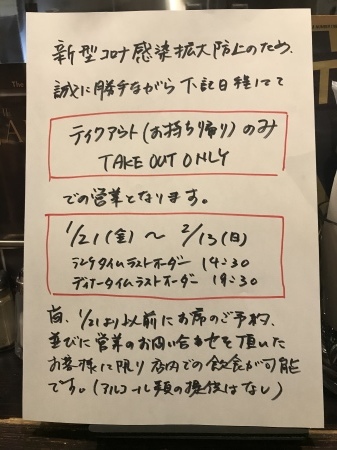 新型コロナ感染拡大防止のため、
誠に勝手ながら下記日程にて
テイクアウト(お持ち帰り)のみ
TAKE OUT ONLY
での営業となります。
1/21(金)〜2/13(日)
ランチタイムラストオーダー 14:30
ディナータイムラストオーダー 19:30
尚、1/21より以前にお席のご予約、
並びに営業のお問い合わせを頂いた
お客様に限り店内での飲食が可能
です。(アルコール類の提供はなし)